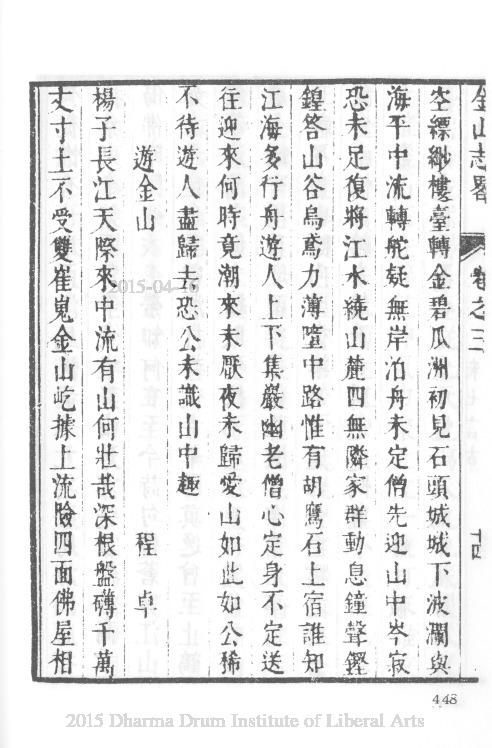 金山志畧 卷之三 十四
空縹緲樓臺轉金碧瓜洲初見石頭城城下波瀾與
海平中流轉舵疑無岸泊舟未定僧先迎山中岑寂
恐未足復將江水繞山麓四無隣家群動息鐘聲鏗
鍠答山谷烏鳶力薄墮中路惟有胡鷹石上宿誰知
江海多行舟遊人上下集巖幽老僧心定身不定送
往迎來何時竟潮來未厭夜未歸愛山如此如公稀
不待遊人盡歸去恐公未識山中趣
遊金山 程卓
楊子長江天際來中流有山何壯哉深根盤礡千萬
丈寸土不受雙崔嵬金山屹據上流險四面佛屋相
448
2015-04-16
2015 Dharma Drum Institute of Liberal Arts